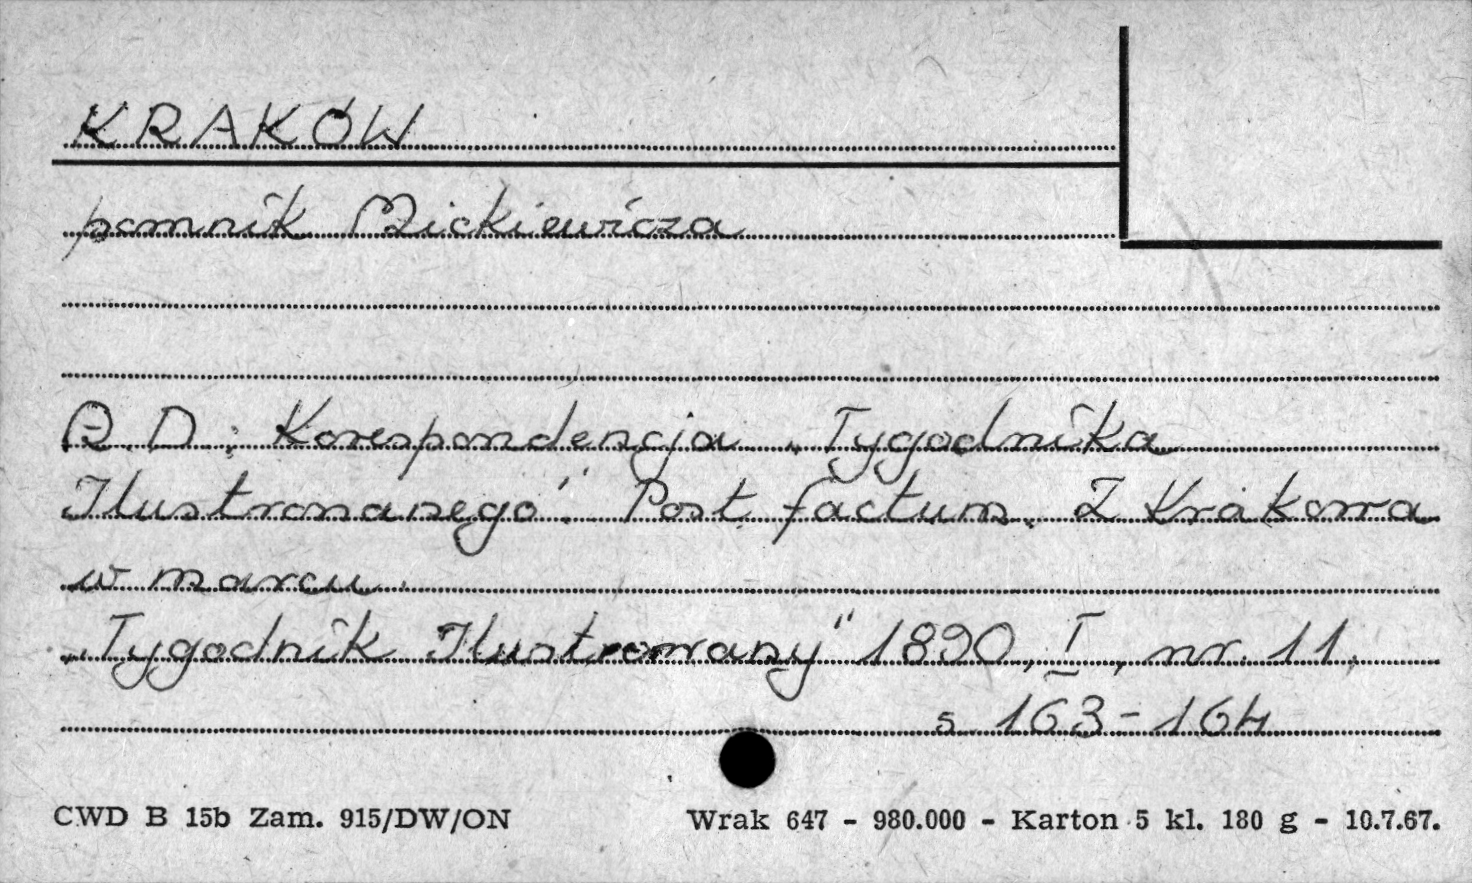 KRAKÓW
pomnik Mickiewicza
A. D.: Korespondencja „Tygodnika
Ilustrowanego". Post factum. Z Krakowa
w marcu.
„Tygodnik Ilustrowany" 1890, I, nr. 11,
s. 163-164
CWD B 15b Zam. 915/DW/ON Wrak 647 - 980.000 - Karton 5 kl. 180 g - 10.7.67.